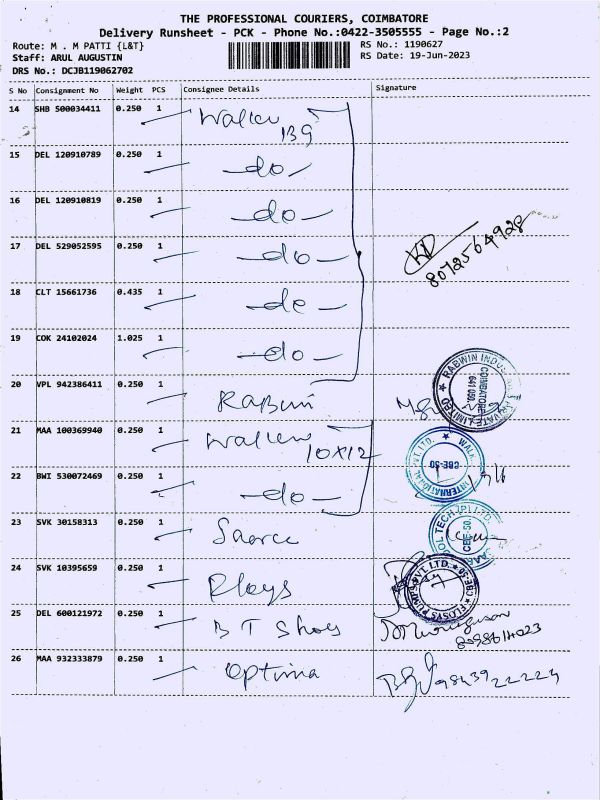 THE PROFESSIONAL COURIERS, COIMBATORE
Delivery Runsheet - PCK - Phone No.:0422-3505555 - Page No.:2
Route: M . M PATTI {L&T} RS No.: 1190627
Staff: ARUL AUGUSTIN RS Date: 19-Jun-2023
DRS No.: DCJB119062702
S No Consignment No Weight PCS Consignee Details Signature
14 SHB 500034411 0.250 1
15 DEL 120910789 0.250 1 -do-
16 DEL 120910819 0.250 1 -do-
17 DEL 529052595 0.250 1 -do-
8072564928
18 CLT 15661736 0.435 1 -do-
19 COK 24102024 1.025 1 -do-
20 VPL 942386411 0.250 1
RABWIN INDUSTRIES PRIVATE LIMITED COIMBATORE
21 MAA 100369940 0.250 1 10x12
INTERNATIONAL PVT. LTD. CBE-50
22 BWI 530072469 0.250 1 -do-
23 SVK 30158313 0.250 1
TOOL TECH (P) LTD. CBE-50
24 SVK 10395659 0.250 1
PUMPS PVT. LTD. CBE-50
25 DEL 600121972 0.250 1 BT Shoes
26 MAA 932333879 0.250 1 Optima 9843922224